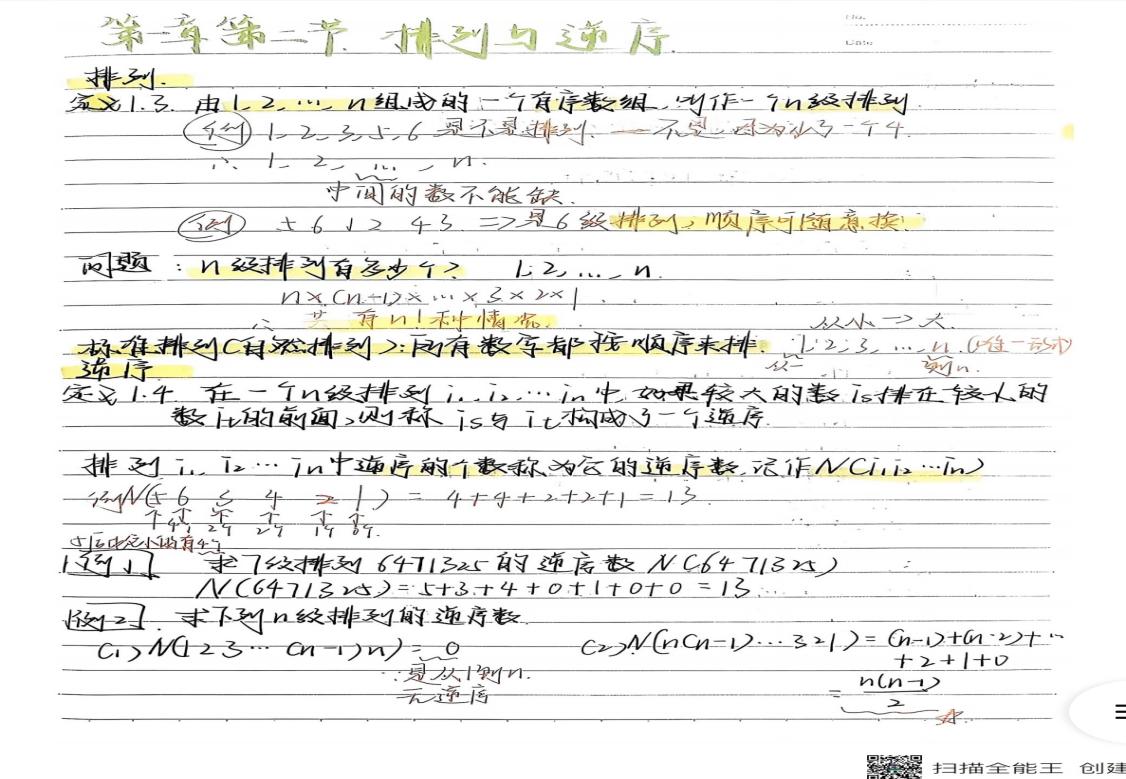 No.
Date
第一章第二节 排列与逆序
排列.
定义1.3. 由1,2,…,n组成的一个有序数组,叫作一个n级排列
例 1,2,3,5,6 是不是排列. — 不是,因为少了一个4.
∴ 1, 2, …, n.
中间的数不能缺.
例 5 6 1 2 4 3. => 是6级排列,顺序可随意换.
问题:n级排列有多少个? 1,2,…,n.
n×(n-1)×…×3×2×1.
∴ 共有n!种情况.
从小→大.
标准排列(自然排列):所有数字都按顺序来排. 1,2,3,…,n.(唯一一种)
从一 到n.
逆序
定义1.4. 在一个n级排列i₁,i₂…in中,如果较大的数is排在较小的
数it的前面,则称is与it构成了一个逆序.
排列i₁,i₂…in中逆序的个数称为它的逆序数,记作N(i₁i₂…in)
例N(5 6 3 4 2 1) = 4+4+2+2+1=13.
4个 2个 2个 1个 0个
5后比它小的有4个
例1 求7级排列6471325的逆序数N(6471325)
N(6471325)=5+3+4+0+1+0+0=13.
例2. 求下列n级排列的逆序数
(1)N(123…(n-1)n)=0 (2)N(n(n-1)…321)=(n-1)+(n-2)+…
+2+1+0
∵是从1到n.
无逆序
= n(n-1)/2
扫描全能王 创建